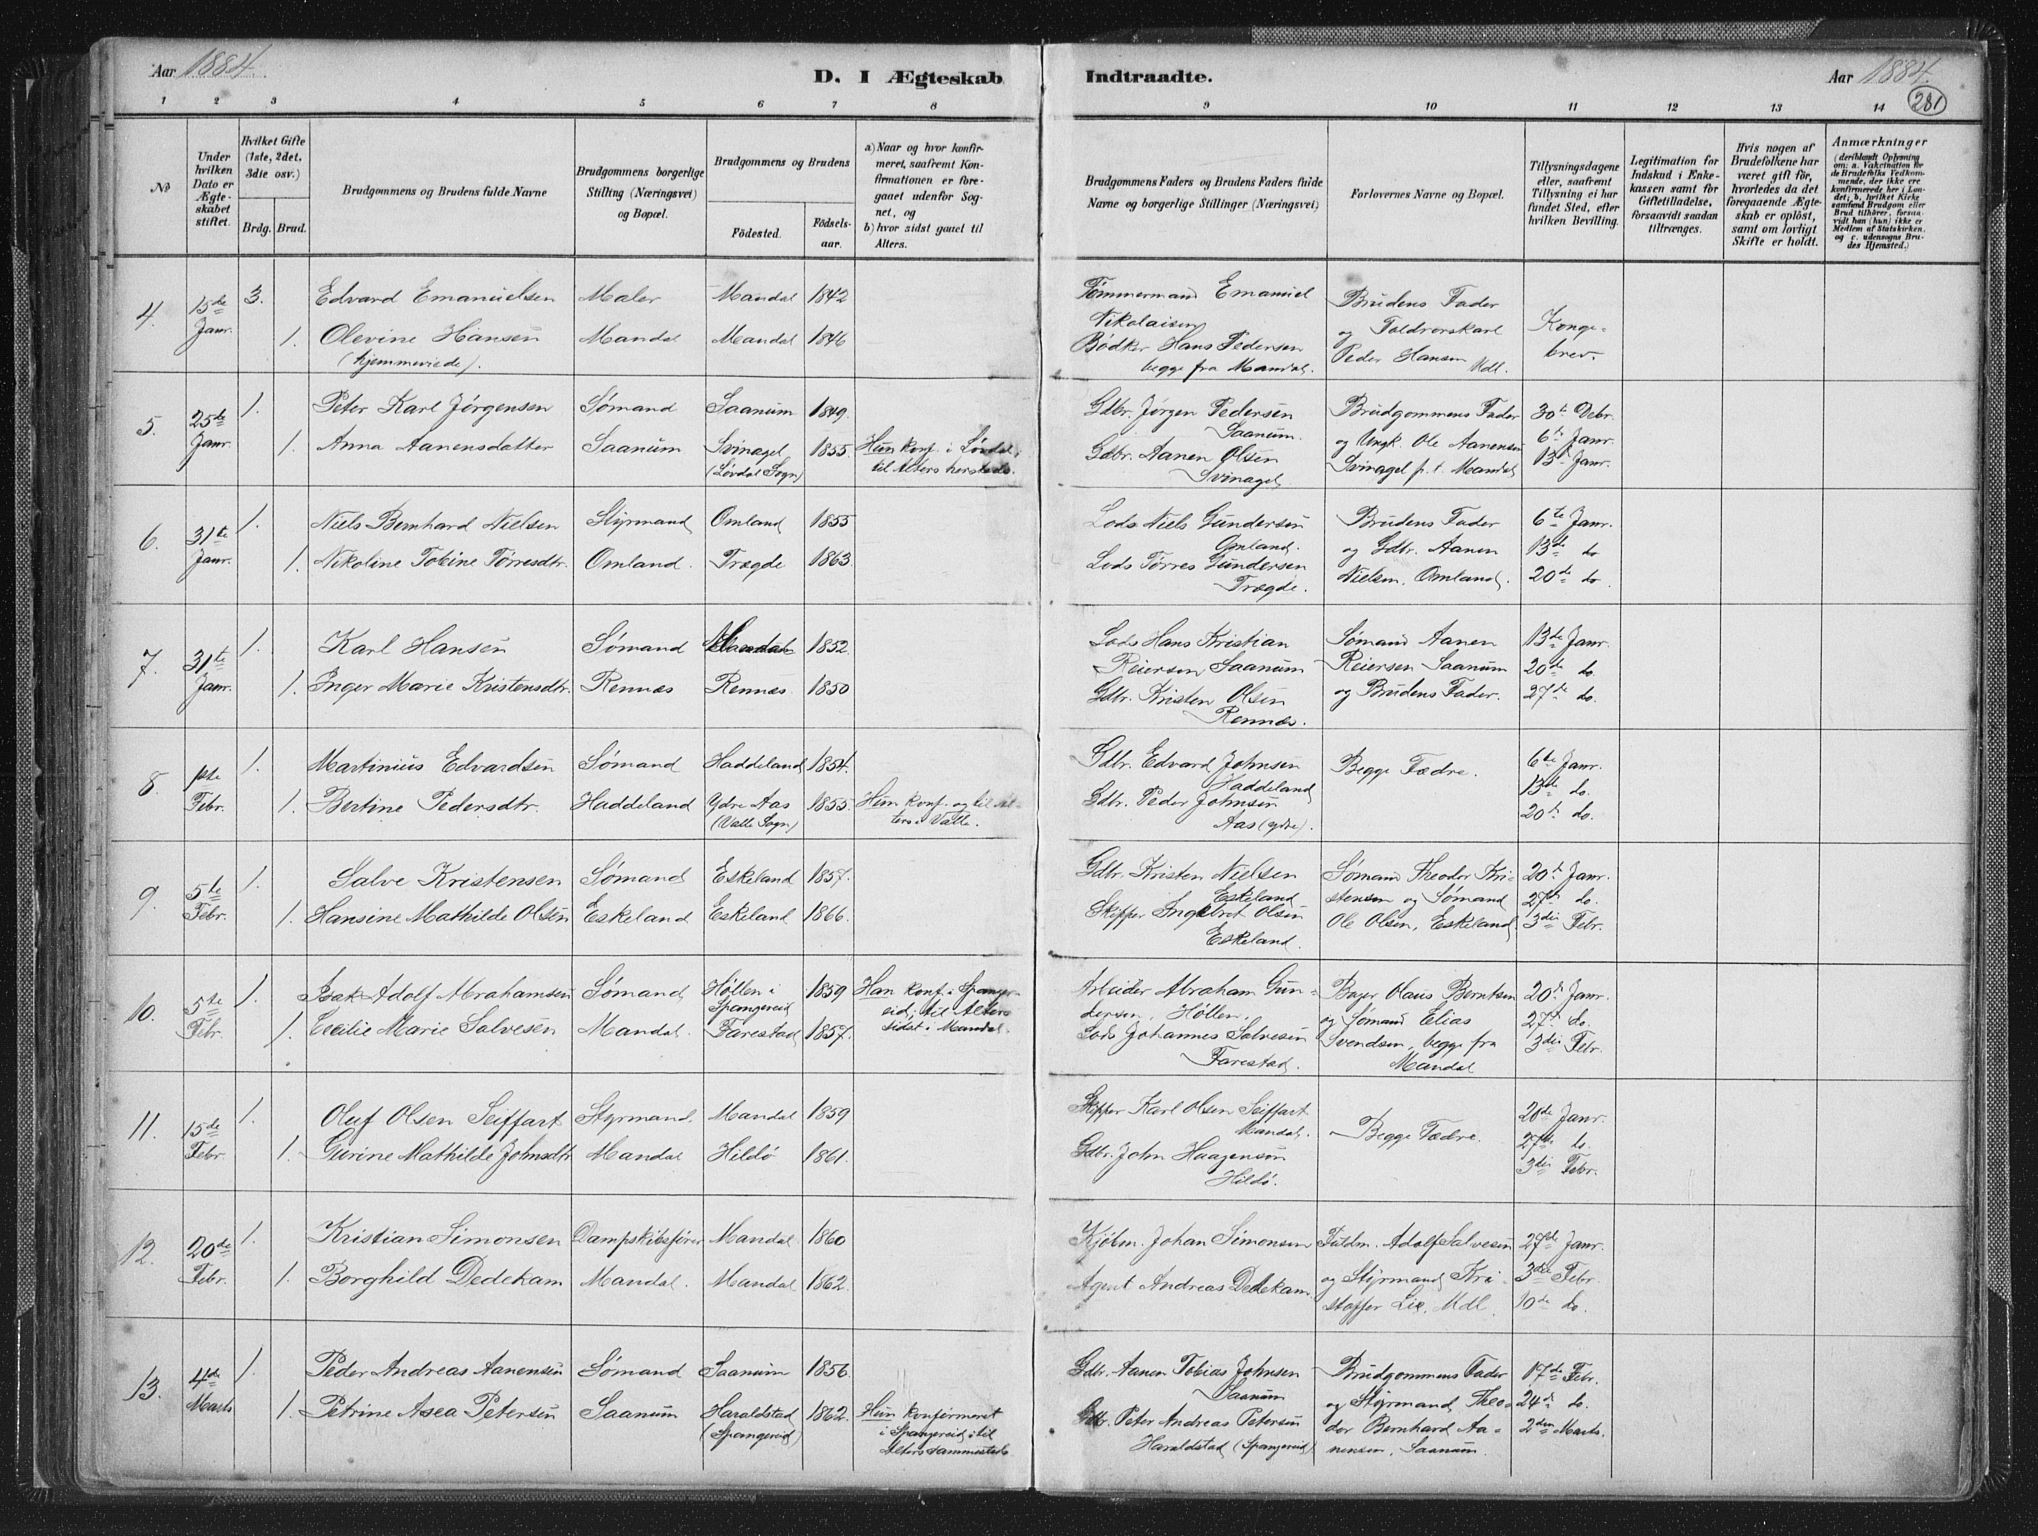 Aar 1884.
D. I Ægteskab
1 2 3 4 5 6 7 8
№
Under hvilken Dato er Ægteskabet stiftet.
Hvilket Gifte (1ste, 2det, 3die osv.)
Brdg. Brud.
Brudgommens og Brudens fulde Navne
Brudgommens borgerlige Stilling (Næringsvei) og Bopæl.
Brudgommens og Brudens
Fødested. Fødselsaar.
a) Naar og hvor konfirmeret, saafremt Konfirmationen er foregaaet udenfor Sognet, og
b) hvor sidst gaaet til Alters.
4. 15de Janr. 3. Edvard Emanuelsen Maler Mandal 1842
1. Olevine Hansen Mandal Mandal 1846
(hjemmeviede).
5. 25de Janr. 1. Peter Karl Jørgensen Sømand Saanum 1849.
1. Anna Aanensdatter Saanum Svinagel 1855 Hun konf. i Løvdal,
(Løvdal Sogn) til Alters hersteds.
6. 31te Janr. 1. Niels Bernhard Nielsen Styrmand Omland 1855
1. Nikoline Tobine Tørresdtr. Omland. Trægde 1863.
7. 31te Janr. 1. Karl Hansen Sømand Mandal 1852.
1. Inger Marie Kristensdtr. Rennæs Rennæs 1850
8. 1ste Febr. 1. Martinius Edvardsen Sømand Haddeland 1854.
1. Bertine Pedersdtr. Haddeland Ydre Aas 1855. Hun konf. og til Al-
(Valle Sogn) ters i Valle.
9. 5te Febr. 1. Salve Kristensen Sømand Eskeland 1857.
1. Hansine Mathilde Olsen Eskeland Eskeland 1866.
10. 5te Febr. 1. Isak Adolf Abrahamsen Sømand Høllen i Spangereid 1859 Han konf. i Spanger-
eid, til Alters
1. Cecilie Marie Salvesen Mandal Farestad 1857. sidst i Mandal.
11. 15de Febr 1. Oluf Olsen Seiffart Styrmand Mandal 1859
1. Gurine Mathilde Johnsdtr Mandal Hildø 1861.
12. 20de Febr. 1. Kristian Simonsen Dampskibsfører Mandal 1860
1. Borghild Dedekam Mandal. Mandal 1862.
13. 4de Marts 1. Peder Andreas Aanensen Sømand Saanum 1856.
1. Petrine Asea Petersen Saanum Haraldstad 1862. Hun konfirmeret
(Spangereid) i Spangereid, til
Alters sammesteds
Indtraadte. Aar 1884.
281
9 10 11 12 13 14
Brudgommens Faders og Brudens Faders fulde Navne og borgerlige Stillinger (Næringsvei)
Forlovernes Navne og Bopæl.
Tillysningsdagene eller, saafremt Tillysning ei har fundet Sted, efter hvilken Bevilling.
Legitimation for Indskud i Enkekassen samt for Giftetilladelse, forsaavidt saadan tiltrænges.
Hvis nogen af Brudefolkene har været gift før, hvorledes da det foregaaende Ægteskab er opløst, samt om lovligt Skifte er holdt.
Anmærkninger
(deriblandt Oplysning om: a. Vakcination for de Brudefolks Vedkommende, der ikke ere konfirmerede her i Landet; b. hvilket Kirkesamfund Brudgom eller Brud tilhører, forsaavidt han (hun) ikke er Medlem af Statskirken, og c. udensogns Brudes Hjemsted.)
Tømmermand Emanuel Brudens Fader
Nikolaisen og Toldrorskarl Konge-
Bødker Hans Pedersen Peder Hansen Mdl. brev.
begge fra Mandal.
Gdbr. Jørgen Pedersen Brudgommens Fader 30te Debr.
Saanum. og Ungk. Ole Aanensen 6te Janr.
Gdbr. Aanen Olsen Svinagel p. t. Mandal 13de Janr.
Svinagel
Lods Niels Gundersen Brudens Fader 6te Janr.
Omland. og Gdbr. Aanen 13de do
Lods Tørres Gundersen Nielsen, Omland. 20de do
Trægde.
Lods Hans Kristian Sømand Aanen 13de Janr.
Reiersen Saanum Reiersen Saanum 20de do.
Gdbr. Kristen Olsen og Brudens Fader. 27de do.
Rennæs.
Gdbr. Edvard Johnsen Begge Fædre. 6te Janr.
Haddeland 13de do.
Gdbr. Peder Johnsen 20de do.
Aas (ydre).
Gdbr. Kristen Nielsen Sømand Theodor Kri- 20de Janr.
Eskeland stensen og Sømand 27de do.
Skipper Ingebret Olsen Ole Olsen, Eskeland 3die Febr.
Eskeland.
Arbeider Abraham Gun- Bager Olaus Berntsen 20de Janr.
dersen, Høllen. og Sømand Elias 27de do.
Lods Johannes Salvesen Svendsen, begge fra 3die Febr.
Farestad. Mandal
Skipper Karl Olsen Seiffart 20de Janr.
Mandal. Begge Fædre. 27de do.
Gdbr. John Haagensen 3die Febr.
Hildø.
Kjøbm. Johan Simonsen Fuldm. Adolf Salvesen 27de Janr.
og Styrmand Kri- 3die Febr.
Agent Andreas Dedekam stoffer Lie, Mdl. 10de do.
Gdbr. Aanen Tobias Johnsen Brudgommens Fader 17de Febr.
Saanum og Styrmand Theo- 24de do.
Gdbr. Peter Andreas Petersen dor Bernhard Aa- 2den Marts.
Haraldstad (Spangereid) nensen, Saanum.